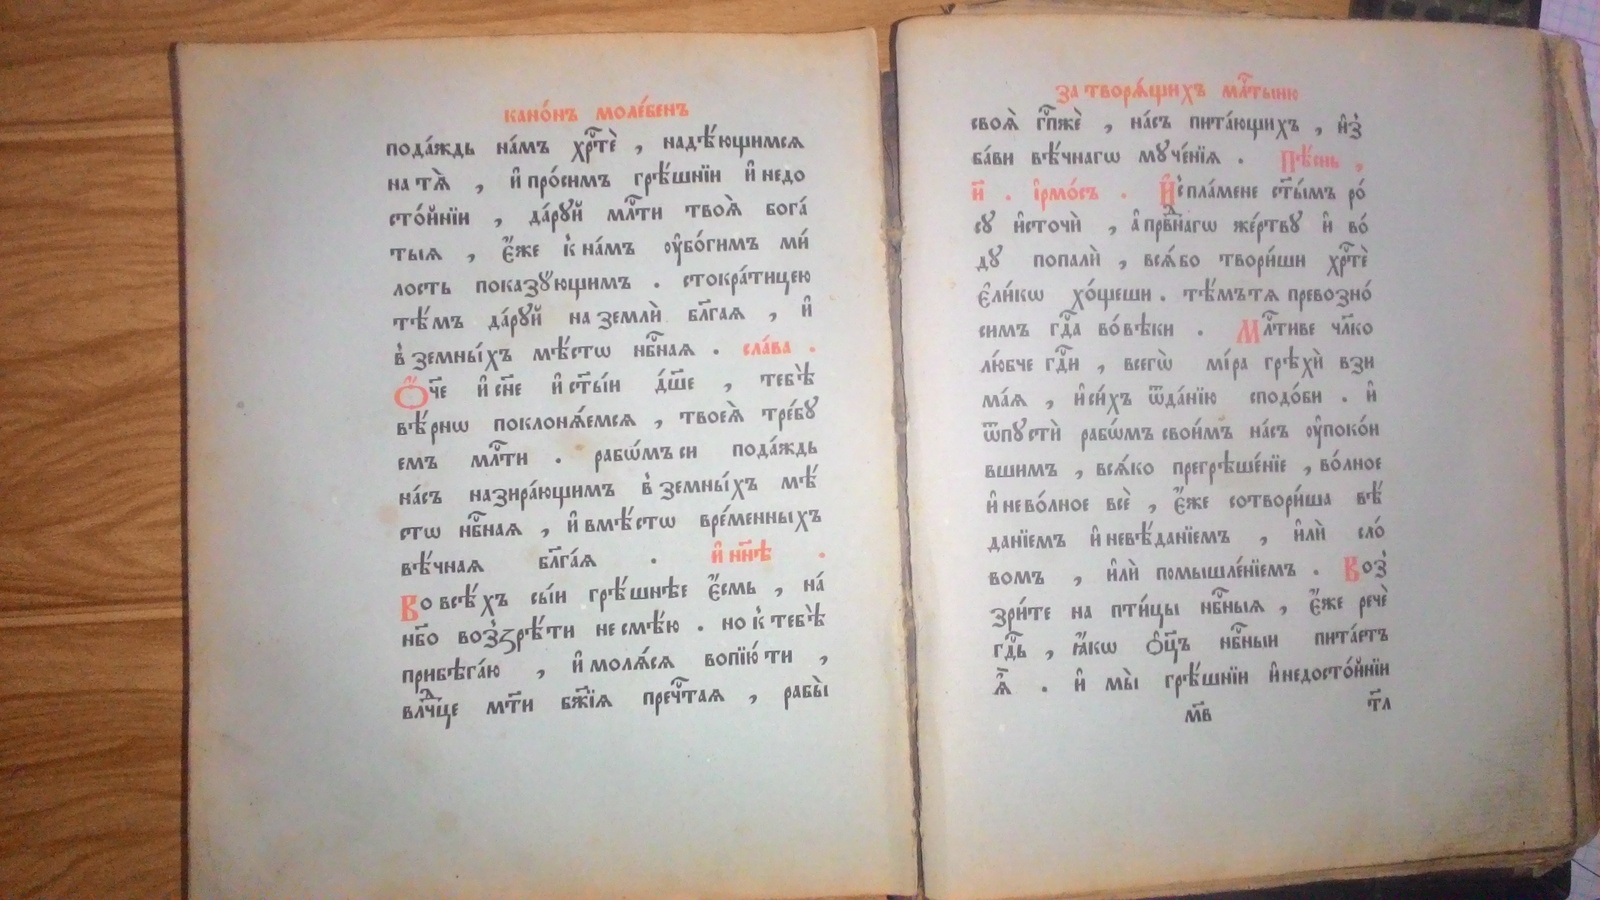 кано́нъ моле́бенъ
пода́ждь на́мъ хрⷭ҇тѐ , надѣ́ющимся
на тѧ̀ , и҆ про́симъ грѣ́шнїи и҆ недо
сто́йнїи , да́руй млⷭ҇ти твоѧ̀ бога́
тыя , є҆́же к̾ на́мъ ᲂу҆бо́гимъ ми́
лость показꙋ́ющимъ . стократи́цею
тѣ́мъ да́руй на землѝ бл҃гая , и҆
в̾ земны́хъ мѣ́стѡ нбⷭ҇ная . сла́ва .
Ѻ҆́ч҃е и҆ сн҃е и҆ ст҃ы́и дш҃е , тебѣ̀
вѣ́рнѡ поклонѧ́емся , твоеѧ̀ тре́бꙋ
емъ млⷭ҇ти . рабѡ́мъ си пода́ждь
на́съ назира́ющимъ в̾ земны́хъ мѣ́
стѡ нбⷭ҇ная , и҆ вмѣ́стѡ вре́менныхъ
вѣ́чная бл҃га́я . и҆ нн҃ѣ .
Во всѣ́хъ сы́и грѣ́шнѣе є҆́смь , на́
нб҃о воз̾зрѣ́ти не смѣ́ю . но к̾ тебѣ̀
прибѣга́ю , и҆ молѧ́ся вопїю́ ти ,
влⷣчце мт҃и бж҃їя пречⷭ҇тая , рабы̀
за творѧ́щихъ млⷭ҇тыню
своѧ̀ гпⷭ҇жѐ , на́съ пита́ющихъ , и҆з̾
ба́ви вѣ́чнагѡ муче́нїя . Пѣ́снь ,
и҃ . і҆рмо́съ . И҆с̾ пла́мене ст҃ы́мъ ро́
су и҆сточѝ , а҆ првⷣнагѡ же́ртву и҆ во́
ду попалѝ , всѧ́ бо твори́ши хрⷭ҇тѐ
є҆ли́кѡ хо́щеши . тѣ́мъ тя превозно́
симъ гдⷭ҇а во́ вѣки . Млⷭ҇тиве чл҃ко
лю́бче гдⷭ҇и , всегѡ̀ мі́ра грѣхѝ взи
ма́я , и҆ си́хъ ѿда́нїю сподо́би . и҆
ѿпустѝ рабѡ́мъ свои́мъ на́съ ᲂу҆поко́и
вшимъ , всѧ́ко прегрѣше́нїе , во́лное
и҆ нево́лное всѐ , є҆́же сотвори́ша вѣ́
данїемъ и҆ невѣ́данїемъ , и҆лѝ сло́
вомъ , и҆лѝ помышле́нїемъ . Воз̾
зри́те на пти́цы нбⷭ҇ныя , є҆́же речѐ
гдⷭ҇ь , ꙗ҆́кѡ ѻ҆ц҃ъ нбⷭ҇ныи пита́етъ
ѧ҆̀ . и҆ мы̀ грѣ́шнїи и҆ недосто́йнїи
м҃в т҃л